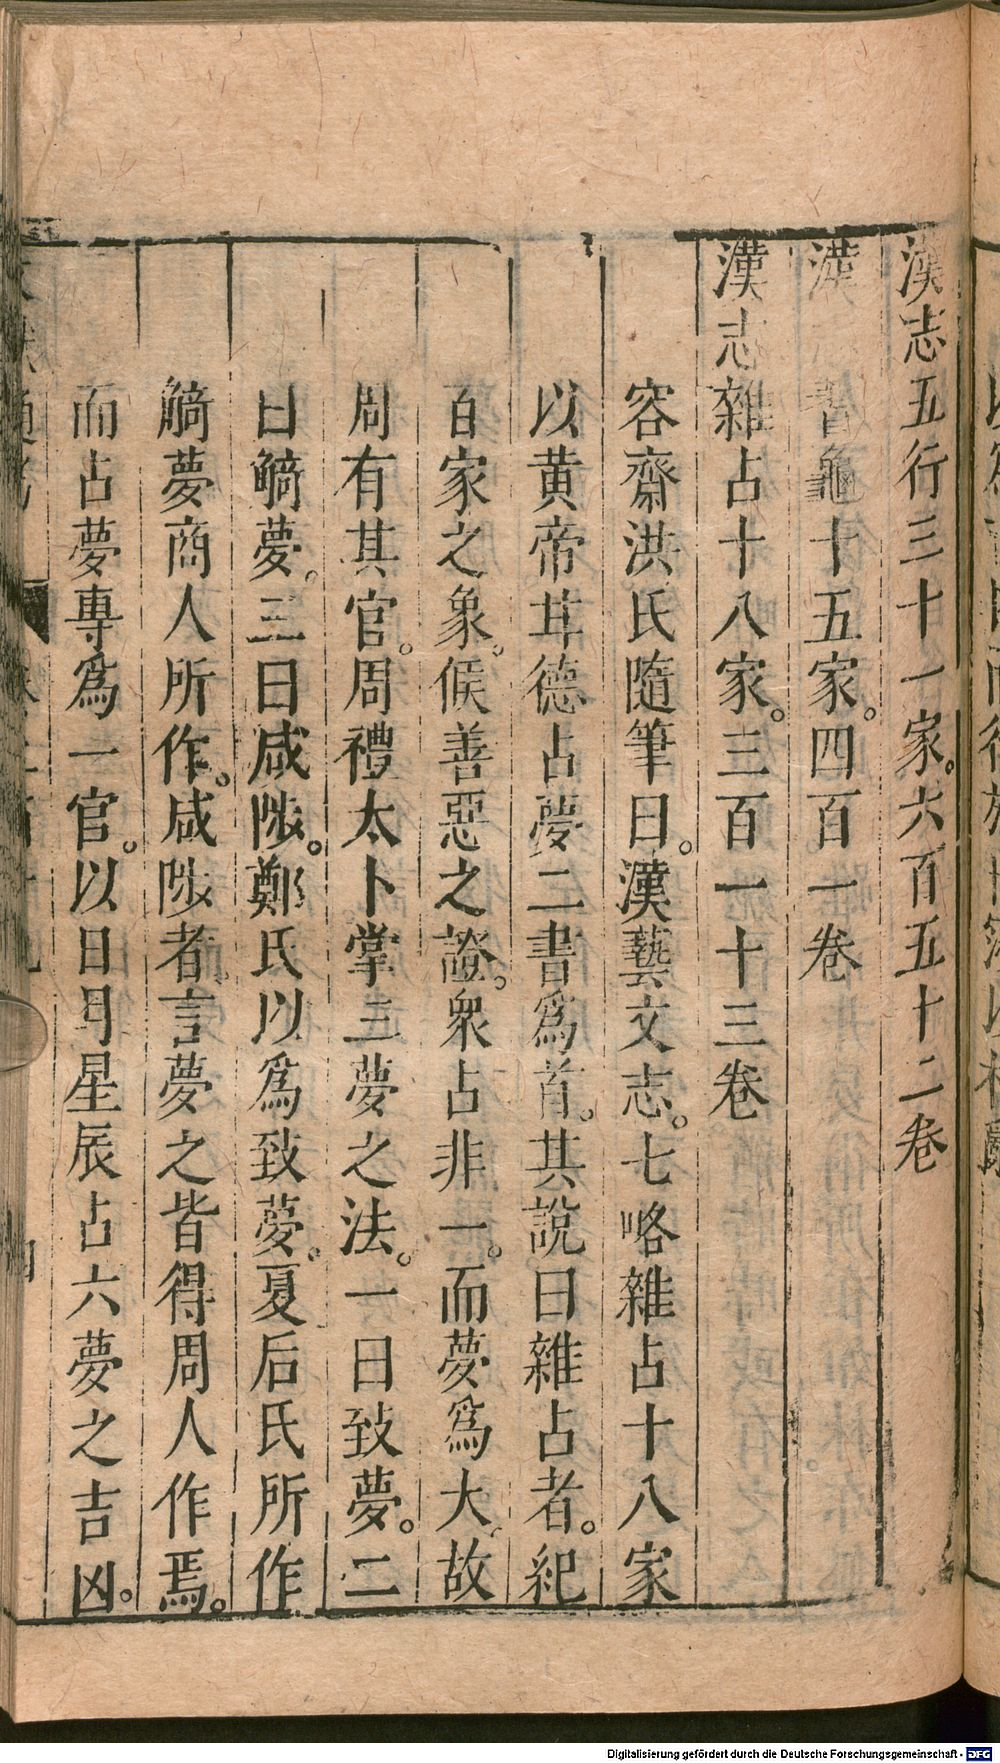 漢志五行三十一家。六百五十二卷
漢 蓍龜十五家。四百一卷
漢志雜占十八家。三百一十三卷
容齋洪氏隨筆曰。漢藝文志。七略雜占十八家
以黄帝甘德占夢二書爲首。其說曰雜占者。紀
百家之象。候善惡之證。衆占非一。而夢爲大。故
周有其官。周禮太卜掌三夢之法。一曰致夢。二
曰觭夢。三曰咸陟。鄭氏以爲致夢。夏后氏所作
觭夢商人所作。咸陟者。言夢之皆得周人作焉。
而占夢專爲一官。以日月星辰占六夢之吉凶。
Digitalisierung gefördert durch die Deutsche Forschungsgemeinschaft - DFG